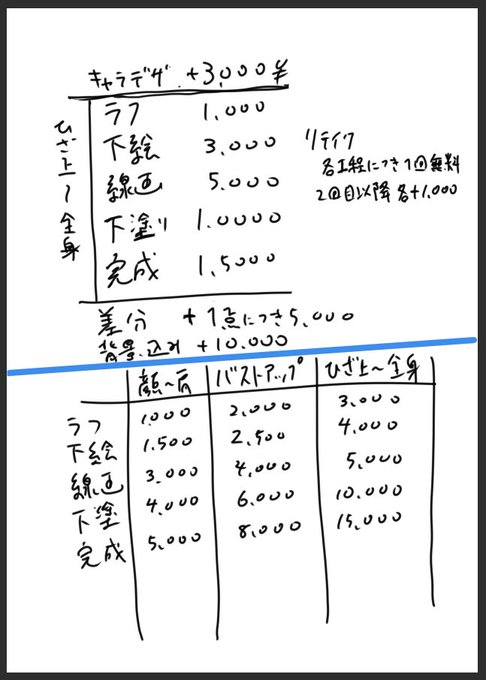 キャラデザ +3,000¥
ひざ上〜全身
ラフ 1,000
下絵 3,000
線画 5,000
下塗り 1.0000
完成 1,5000
リテイク
各工程につき1回無料
2回目以降各+1,000
差分 +1点につき5,000
背景込み +10.000
顔〜肩 バストアップ ひざ上〜全身
ラフ 1,000 2,000 3,000
下絵 1.500 2,500 4,000
線画 3,000 4,000 5,000
下塗 4,000 6.000 10.000
完成 5,000 8,000 15,000